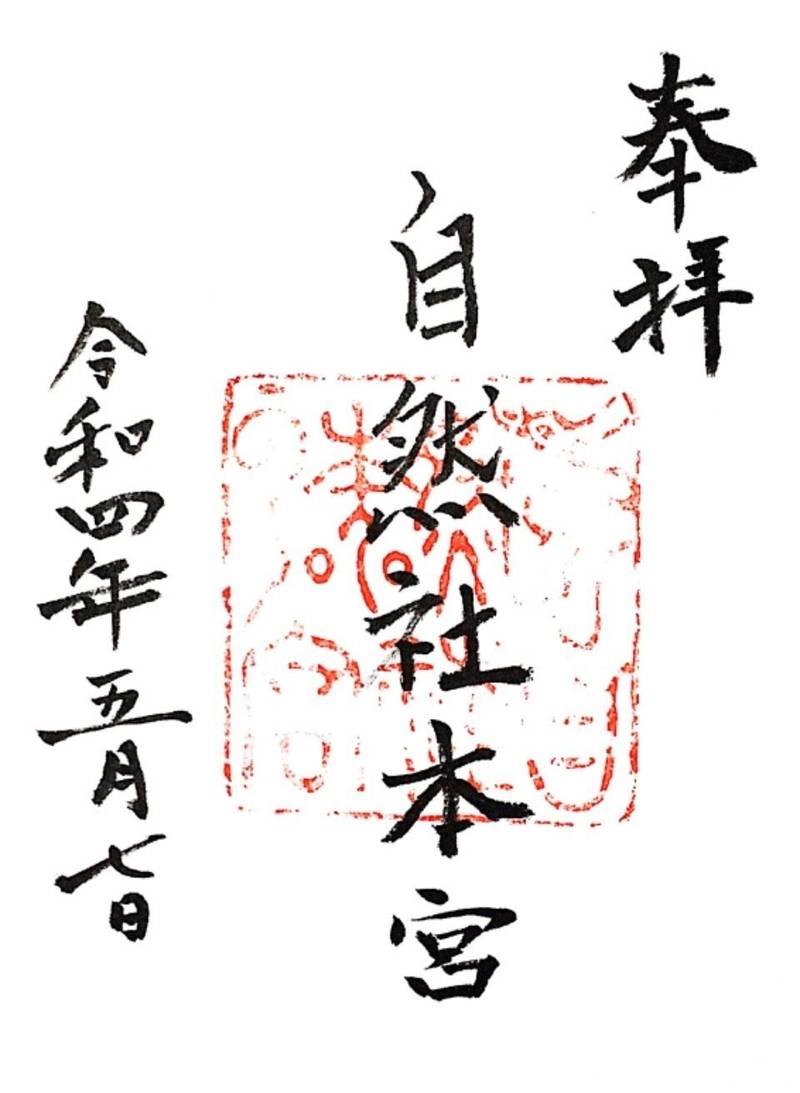 奉拝
自然社本宮
令和四年五月七日